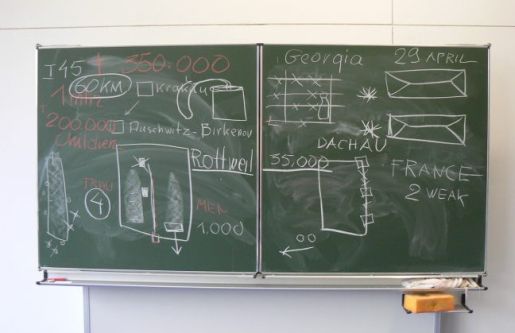 I 45
† 350.000
60KM
Krakau
1 MIO.
200.000
Children
Auschwitz-Birkenau
Rottweil
4
MEN
1.000
Georgia
29 APRIL
DACHAU
35.000
FRANCE
2 WEAK